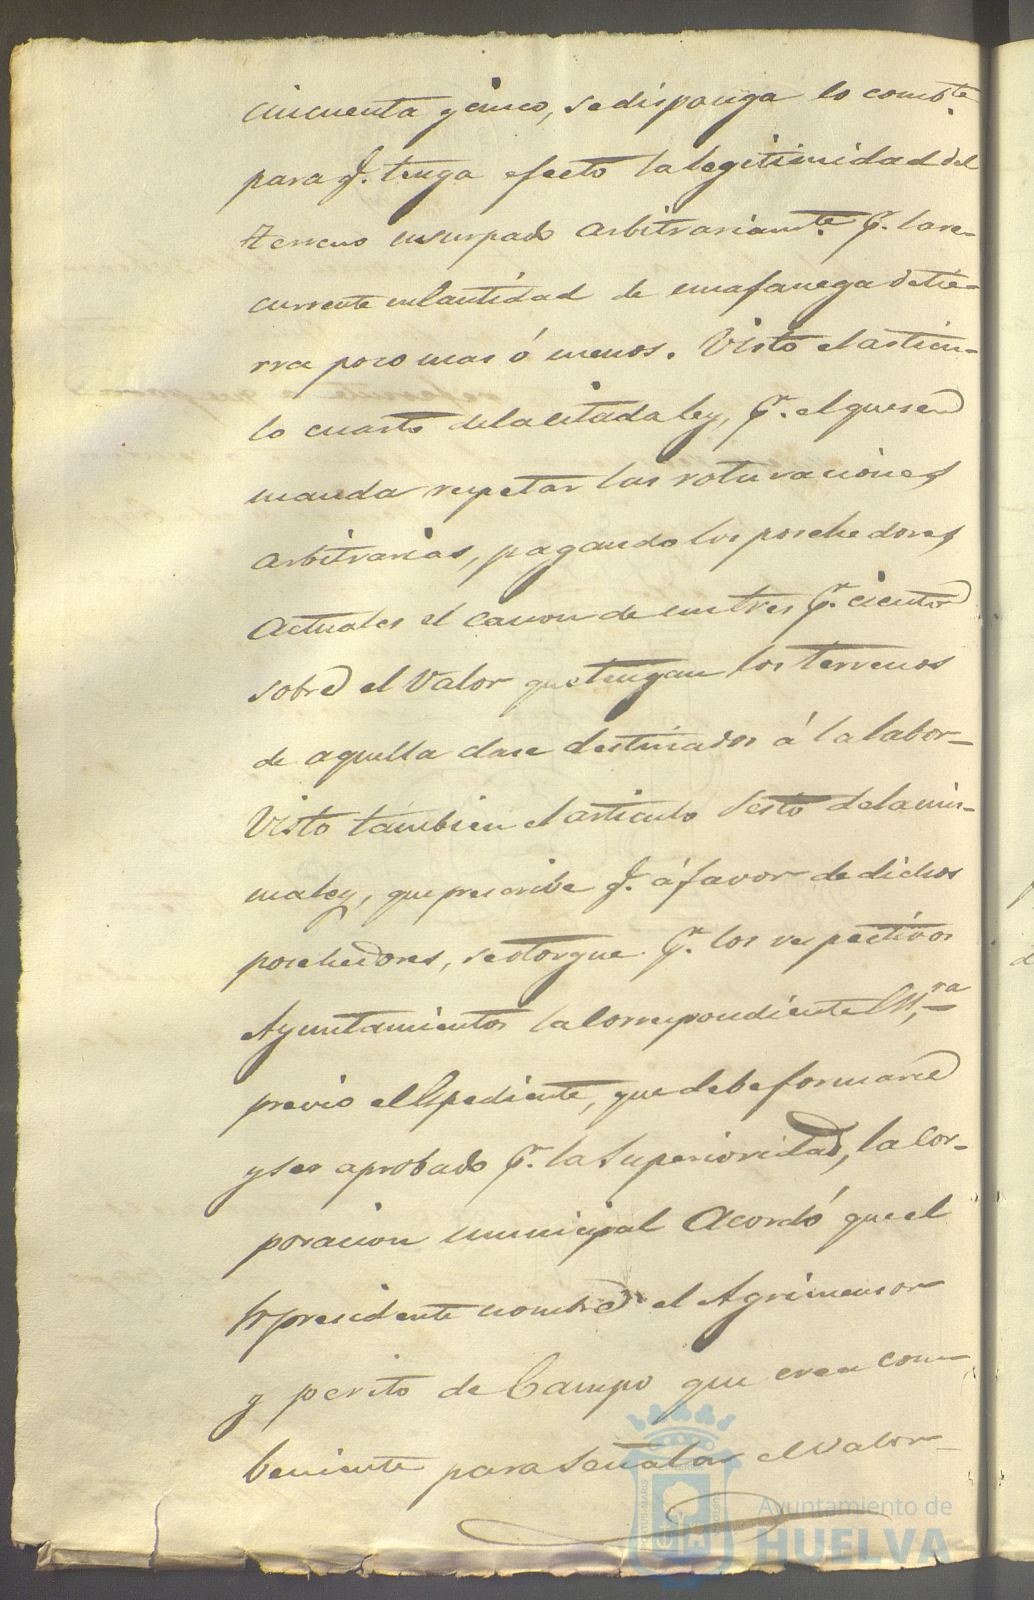 cincuenta y cinco, se disponga lo comb.te
para q.e tenga efecto la legitimidad del
terreno usurpado arbitrariam.te p.r la re-
currente en Cantidad de una fanega de tie-
rra poco mas ó menos. Visto el articu-
lo cuarto de la citada ley, p.r el que se
manda respetar las roturaciones
arbitrarias, pagando los posehedores
Actuales el canon de un tres p.r ciento
sobre el Valor que tengan los terrenos
de aquella clase destinados á la labor-
Visto tambien el articulo Sesto de la mis-
ma ley, que prescribe q.e á favor de dichos
posehedores, se otorgue p.r los respectivos
Ayuntamientos la Correspondiente Esc.ra
previo el Espediente, que debe formarse
y ser aprobado p.r la Superioridad, la Cor-
poracion municipal Acordó que el
Sr presidente nombre el Agrimensor
y perito de Campo que crea com-
beniente para Señalar el Valor
Ayuntamiento de
HUELVA